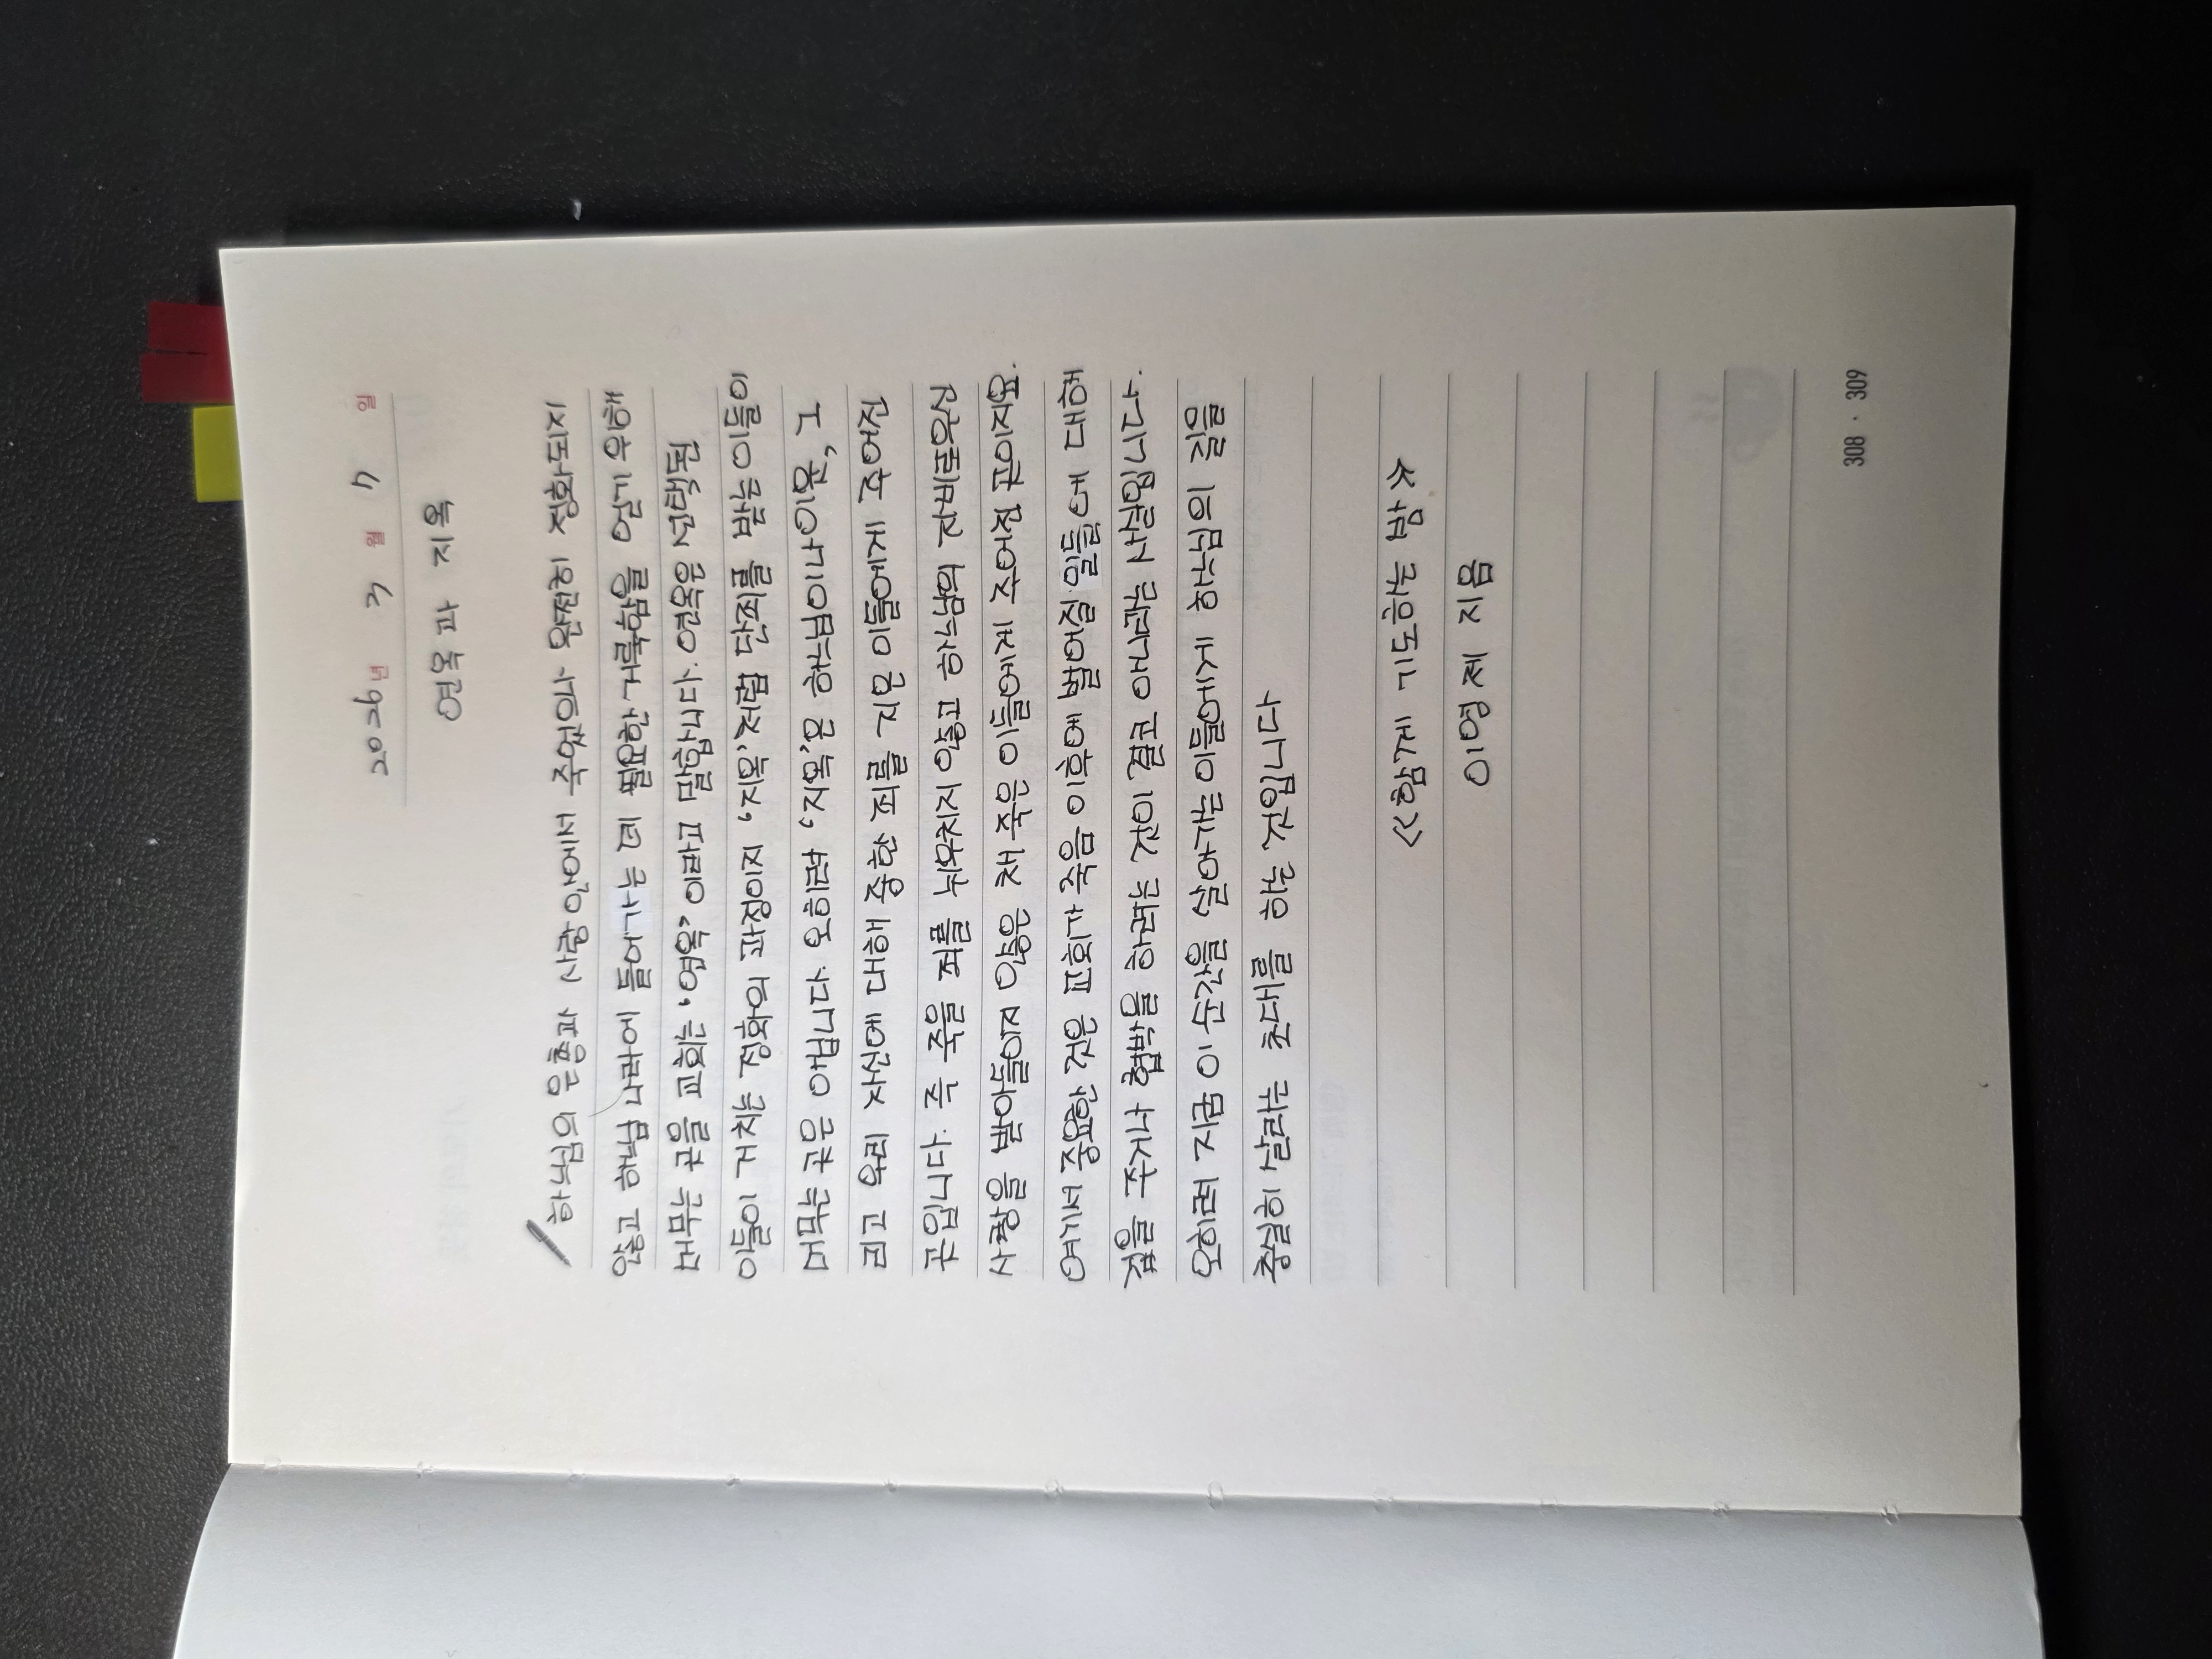 2026년 3월 7일
연옥과 지옥
하느님의 은총과 사랑안에서 죽었으나 완전히 정화되지
않고 하느님 나라에 들어가는 데 필요한 거룩함을 얻기 위해
머무는 곳을 교회는 '연옥' 이라고 말합니다. 연옥은 선택된
이들이 거치는 정화의 과정이지 '지옥'처럼 단죄를 받는 이들이
머무는 곳은 아닙니다. 오히려 '지옥'은 하느님이나 이웃, 그
리고 우리 자신에 대해 중한 죄를 지은 이들에게 주어진
곳입니다. 즉 죽을 죄를 뉘우치지 않고 하느님의 자비로우신
사랑을 받아들이지 않은 채 죽은 이들에게 주어진 곳이지요.
여기서 중요한 것은 교회가 죽음 이후에 벌어질 일들에 대해
겁을 주거나 협박을 하려는 것이 결코 아니라는 사실입니다.
오히려 지금 이 순간을 살아가는 이들에게 하느님의 길을
충실히 살라는 초대를 하는 것입니다
<<함께 기도하는 밤>>
이영제 지음
308 · 309